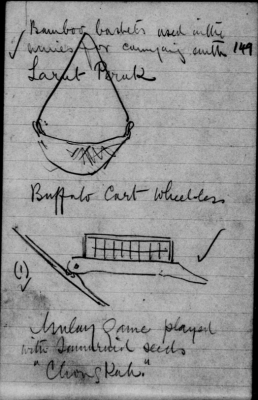 Bamboo baskets used in the
mines for carrying earth 149
Larut Perak
Buffalo Cart Wheel-less
(1)
Malay Game played
with Tamarind seeds
"Chongkah"